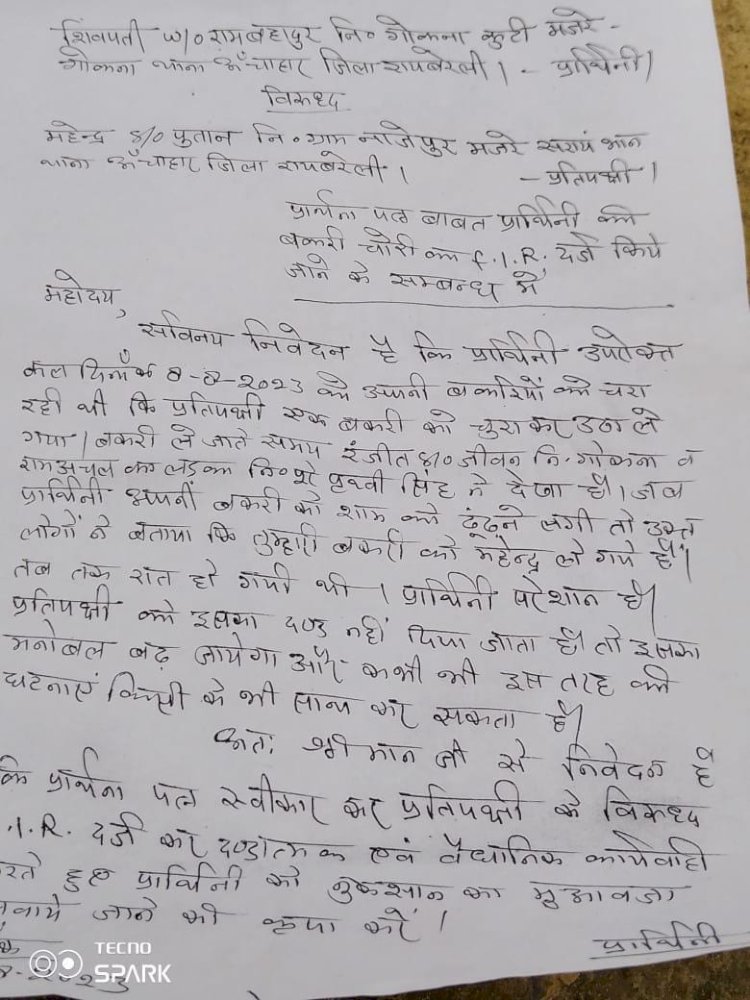 शिवपती w/o रामबहादुर नि० गोकना कुटी मजरे -
गोकना थाना ऊँचाहार जिला रायबरेली। - प्रार्थिनी।
विरूध्द
महेन्द्र s/o पुतान नि० ग्राम नाजेपुर मजरे सराय भान
थाना ऊँचाहार जिला रायबरेली। - प्रतिपक्षी।
प्रार्थना पत्र बाबत प्रार्थिनी की
बकरी चोरी का F.I.R. दर्ज किये
जाने के सम्बन्ध में
महोदय,
सविनय निवेदन है कि प्रार्थिनी उपरोक्त
कल दिनाँक 8-8-2023 को अपनी बकरियों को चरा
रही थी कि प्रतिपक्षी एक बकरी को चुरा कर उठा ले
गया। बकरी ले जाते समय रंजीत s/o जीवन नि. गोकना व
रामअचल का लड़का नि० पूरे पृथ्वी सिंह ने देखा है। जब
प्रार्थिनी अपनी बकरी को शाम को ढूंढ़ने लगी तो उक्त
लोगों ने बताया कि तुम्हारी बकरी को महेन्द्र ले गये हैं।
तब तक रात हो गयी थी। प्रार्थिनी परेशान है।
प्रतिपक्षी को इसका दण्ड नहीं दिया जाता है तो इसका
मनोबल बढ़ जायेगा और कभी भी इस तरह की
घटनाएं किसी के भी साथ कर सकता है।
अतः श्रीमान जी से निवेदन है
कि प्रार्थना पत्र स्वीकार कर प्रतिपक्षी के विरूध्द
.I.R. दर्ज कर दण्डात्मक एवं वैधानिक कार्यवाही
रते हुए प्रार्थिनी को नुकसान का मुआवजा
लवाये जाने की कृपा करें।
प्रार्थिनी
TECNO
SPARK
8-2023